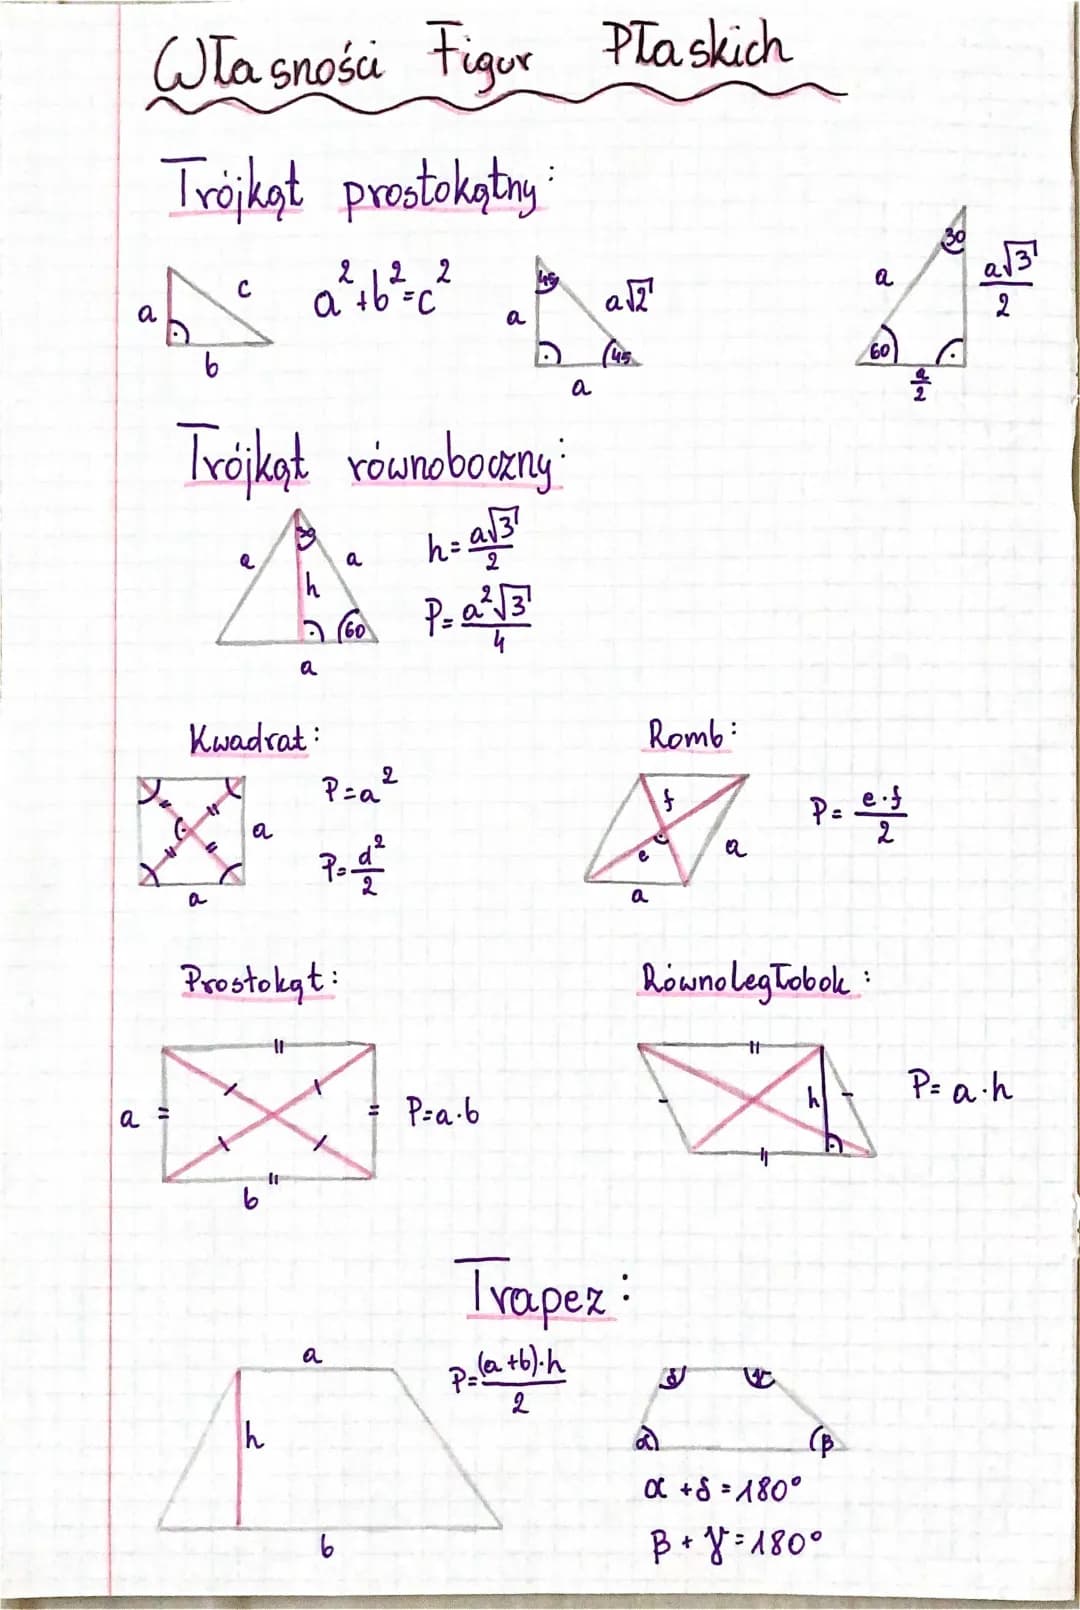 Własności Figur Płaskich
Trójkąt prostokątny:
a
c
b
a²+b²=c²
45
a
a√2
45
a
30
a
a√3/2
60
a/2
Trójkąt równoboczny:
30
a
a
h
60
a
h=a√3/2
P=a²√3/4
Kwadrat:
a
a
P=a²
P=d²/2
Romb:
f
e
a
a
P=e·f/2
Prostokąt:
a
b
P=a·b
Równoległobok:
h
P=a·h
Trapez:
a
h
b
P=(a+b)·h/2
δ
γ
α
β
α+δ=180°
β+γ=180°